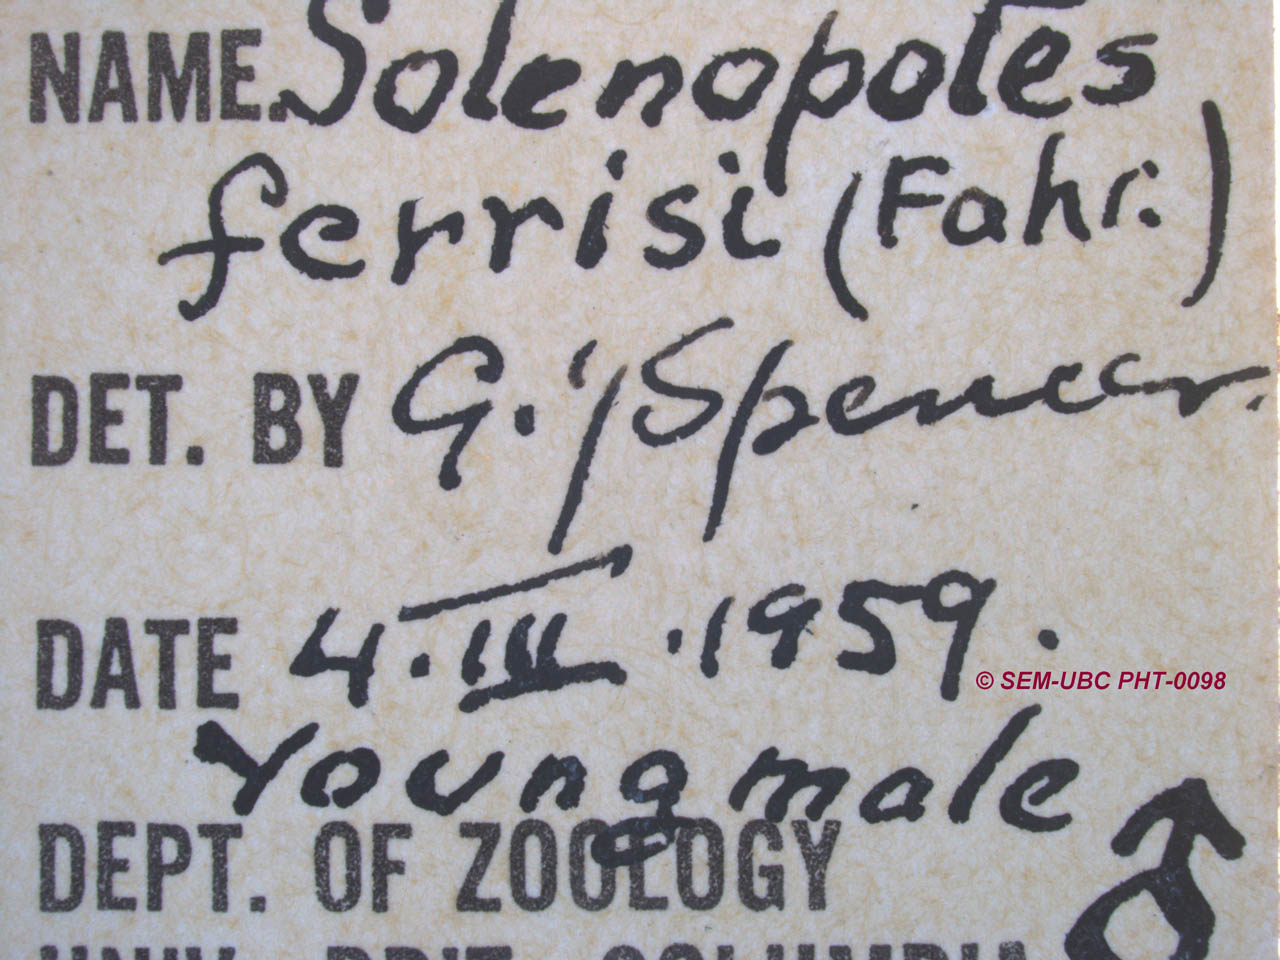 NAME. Solenopotes
ferrisi (Fahr.)
DET. BY G. J Spencer.
DATE 4. III. 1959.
© SEM-UBC PHT-0098
Young male ♂
DEPT. OF ZOOLOGY
UNIV. BRIT. COLUMBIA